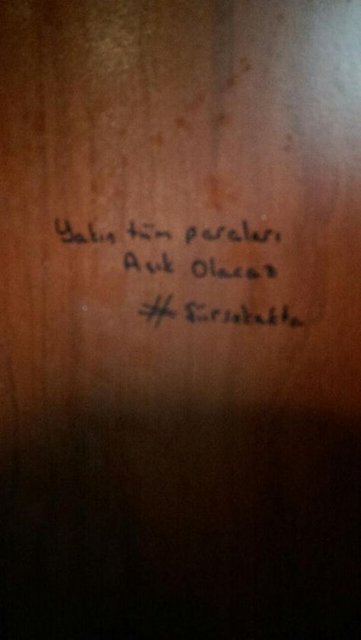 Yakın tüm paraları
Aşık Olacaz
#Şiirsokakta